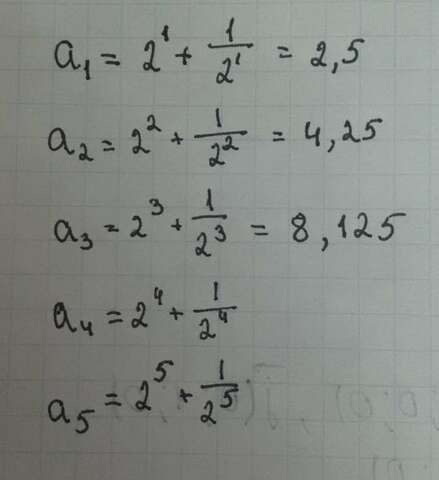 a₁ = 2¹ + 1/2¹ = 2,5
a₂ = 2² + 1/2² = 4,25
a₃ = 2³ + 1/2³ = 8,125
a₄ = 2⁴ + 1/2⁴
a₅ = 2⁵ + 1/2⁵